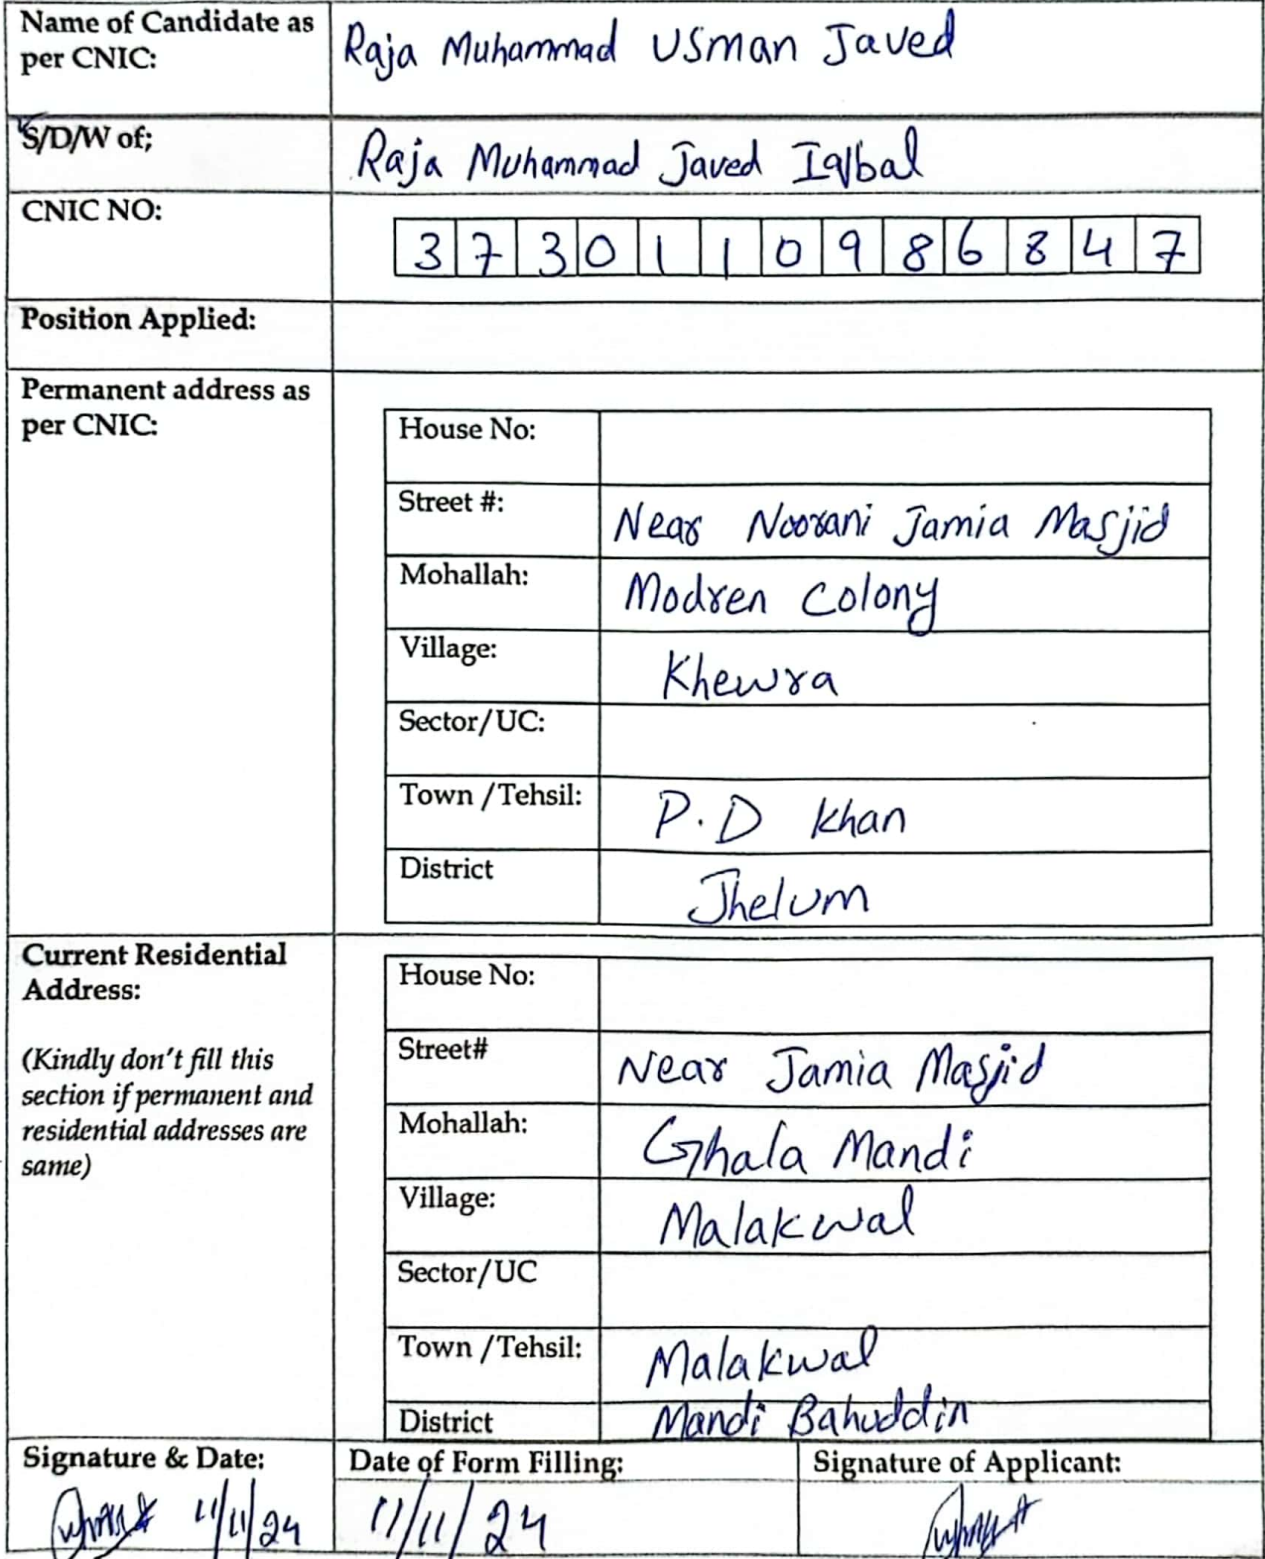 Name of Candidate as per CNIC: Raja Muhammad Usman Javed
S/D/W of; Raja Muhammad Javed Iqbal
CNIC NO: 3730110986847
Position Applied:
Permanent address as per CNIC:
House No:
Street #: Near Noorani Jamia Masjid
Mohallah: Modren Colony
Village: Khewra
Sector/UC:
Town /Tehsil: P.D Khan
District Jhelum
Current Residential Address:
(Kindly don't fill this section if permanent and residential addresses are same)
House No:
Street# Near Jamia Masjid
Mohallah: Ghala Mandi
Village: Malakwal
Sector/UC
Town /Tehsil: Malakwal
District Mandi Bahuddin
Signature & Date: 11/11/24
Date of Form Filling: 11/11/24
Signature of Applicant: